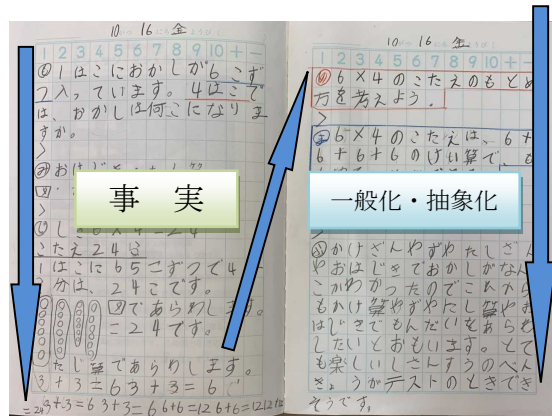 10 16 金
1 2 3 4 5 6 7 8 9 10 + −
も 1はこにおかしが6こず
つ入っています。4はこで
は、おかしは何こになりま
すか。
み お
事 実
し 6×4=24
こたえ24こ
1はこに6こずつで4
分は、24こです。
図であらわします。
=24です。
たし算であらわします。
3+3=6 3+3=6
=24 3+3=6 3+3=6 6+6=12 6+6=12
10 16 金
1 2 3 4 5 6 7 8 9 10 + −
め 6×4のこたえのもとめ
方を考えよう。
ま 6×4のこたえは、6+
6+6+6のけい算で、も
一般化・抽象化
ふ かけざんやずやたしざん
やおはじきでおかしがなん
こかわかったのでこれから
もかけ算やずやたし算やお
はじきでもんだいをあらわ
したいとおもいます。とて
も楽しいしさんすうのべん
きょうがテストのときでき
そうです。